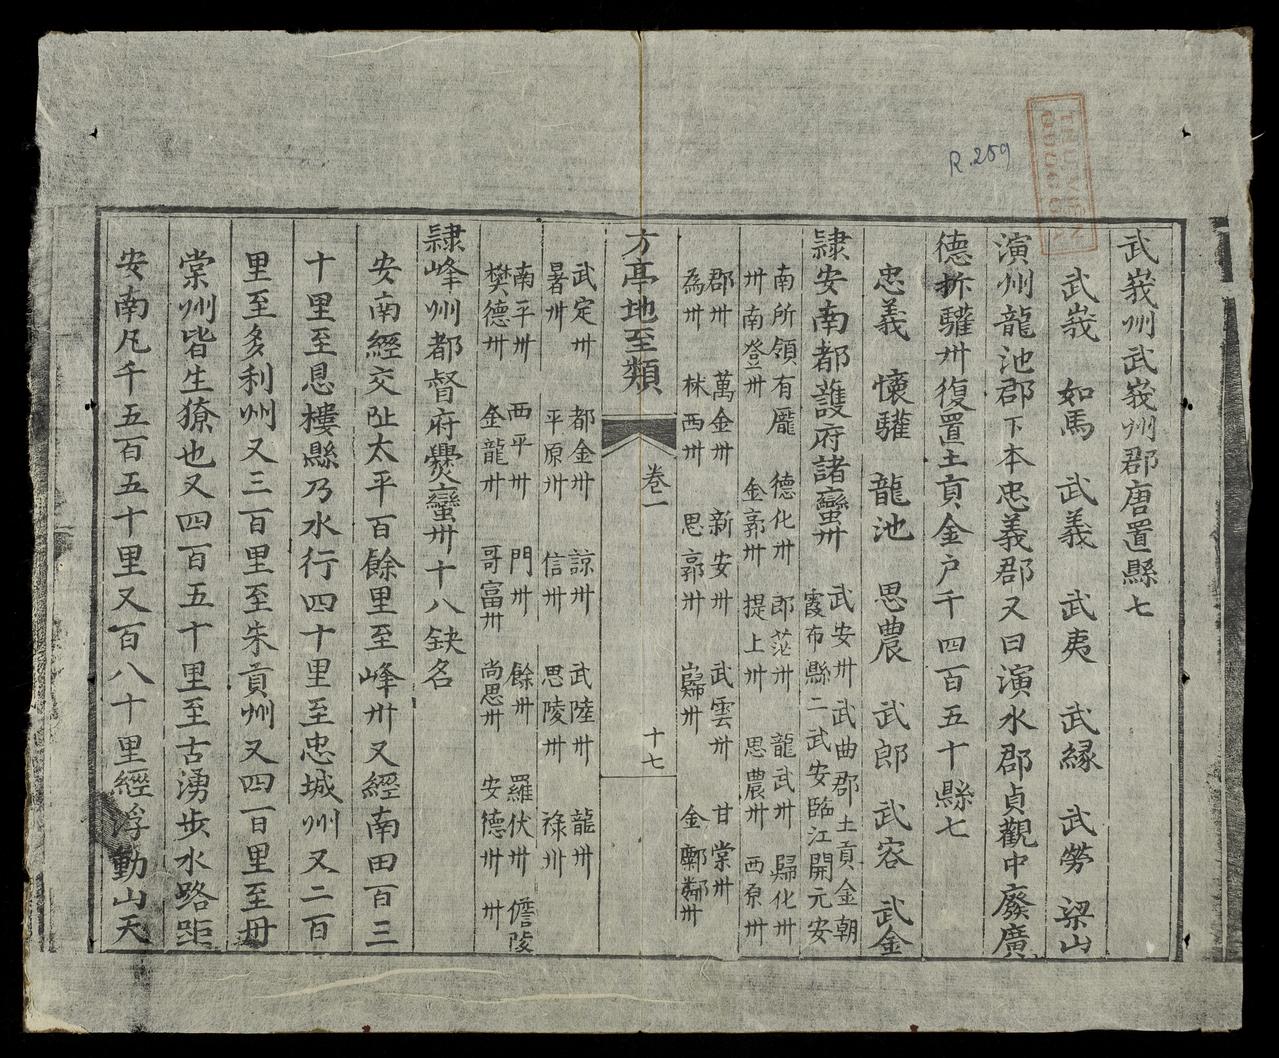 R.259
武峩州武峩州郡唐置縣七
武峩 如馬 武義 武夷 武縁 武勞 梁山
演州龍池郡下本忠義郡又曰演水郡貞觀中廢廣
德拆驩卅復置土貢金户千四百五十縣七
忠義 懷驩 龍池 思農 武郎 武容 武金
隷安南都護府諸蠻卅
武安卅武曲郡土貢金朝
霞布縣二武安臨江開元安
南所領有龐 德化卅 郎茫卅 龍武卅 歸化卅
卅南登卅 金郭卅 提上卅 思農卅 西原卅
郡卅 萬金卅 新安卅 武雲卅 甘棠卅
為卅 林西卅 思郭卅 巋卅 金鄴鄰卅
方亭地至類 卷一 十七
武定卅 都金卅 諒卅 武陸卅 龍卅
暑卅 平原卅 信卅 思陵卅 祿卅
南平卅 西平卅 門卅 餘卅 羅伏卅 儋陵
樊德卅 金龍卅 哥富卅 尚思卅 安德卅 卅
隷峰州都督府爨蠻卅十八缺名
安南經交阯太平百餘里至峰卅又經南田百三
十里至恩樓縣乃水行四十里至忠城州又二百
里至多利州又三百里至朱貢州又四百里至丹
棠州皆生獠也又四百五十里至古湧步水路距
安南凡千五百五十里又百八十里經浮動山天